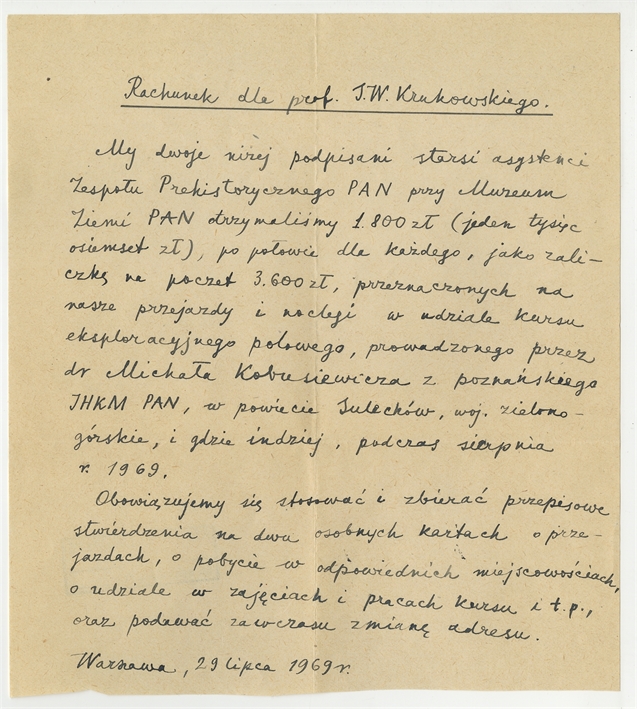 Rachunek dla prof. S.W. Krukowskiego.
My dwoje niżej podpisani starsi asystenci
Zespołu Prehistorycznego PAN przy Muzeum
Ziemi PAN otrzymaliśmy 1.800 zł (jeden tysięc
osiemset zł), po połowie dla każdego, jako zali-
czkę na poczet 3.600 zł, przeznaczonych na
nasze przejazdy i noclegi w udziale kursu
eksploracyjnego polowego, prowadzonego przez
dr Michała Kobusiewicza z poznańskiego
IHKM PAN, w powiecie Sulechów, woj. zielono-
górskie, i gdzie indziej, podczas sierpnia
r. 1969.
Obowiązujemy się stosować i zbierać przepisowe
stwierdzenia na dwu osobnych kartach o prze-
jazdach, o pobycie w odpowiednich miejscowościach,
o udziale w zajęciach i pracach kursu i t.p.,
oraz podawać zawczasu zmianę adresu.
Warszawa, 29 lipca 1969 r.